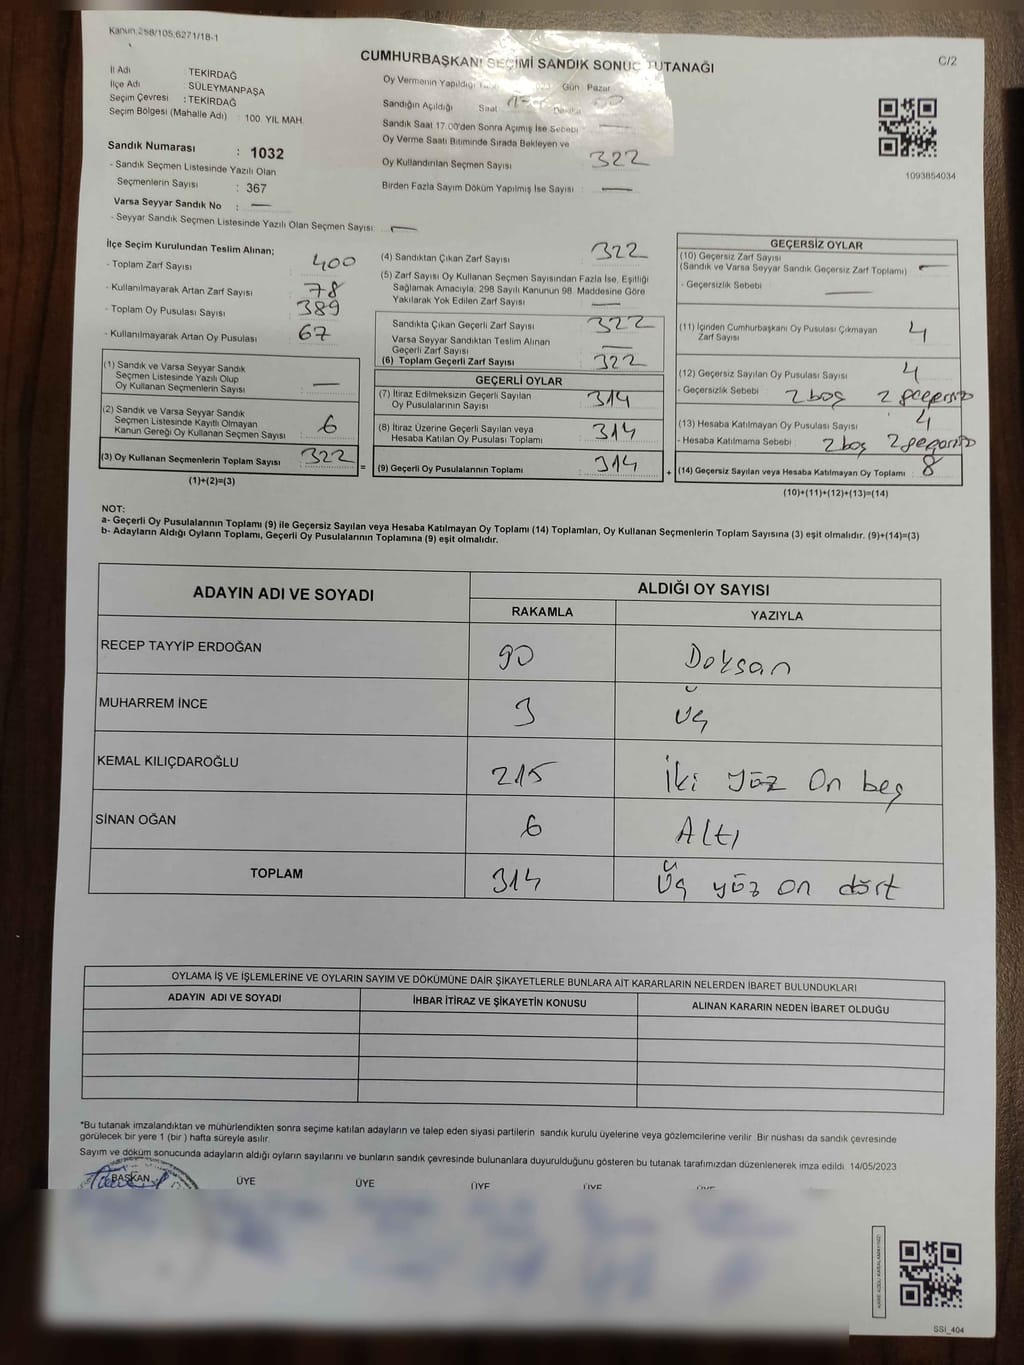 Kanun,298/105,6271/18-1
CUMHURBAŞKANI SEÇİMİ SANDIK SONUÇ TUTANAĞI
C/2
İl Adı : TEKİRDAĞ
İlçe Adı : SÜLEYMANPAŞA
Seçim Çevresi : TEKİRDAĞ
Seçim Bölgesi (Mahalle Adı) : 100. YIL MAH.
Sandık Numarası : 1032
- Sandık Seçmen Listesinde Yazılı Olan
Seçmenlerin Sayısı : 367
Varsa Seyyar Sandık No : —
- Seyyar Sandık Seçmen Listesinde Yazılı Olan Seçmen Sayısı: —
Oy Vermenin Yapıldığı Gün Pazar
Sandığın Açıldığı Saat
Sandık Saat 17.00'den Sonra Açımış İse Sebebi —
Oy Verme Saati Bitiminde Sırada Bekleyen ve
Oy Kullandırılan Seçmen Sayısı 322
Birden Fazla Sayım Döküm Yapılmış İse Sayısı : —
1093854034
İlçe Seçim Kurulundan Teslim Alınan;
- Toplam Zarf Sayısı : 400
- Kullanılmayarak Artan Zarf Sayısı : 78
- Toplam Oy Pusulası Sayısı : 389
- Kullanılmayarak Artan Oy Pusulası : 67
(1) Sandık ve Varsa Seyyar Sandık
Seçmen Listesinde Yazılı Olup
Oy Kullanan Seçmenlerin Sayısı : —
(2) Sandık ve Varsa Seyyar Sandık
Seçmen Listesinde Kayıtlı Olmayan
Kanun Gereği Oy Kullanan Seçmen Sayısı : 6
(3) Oy Kullanan Seçmenlerin Toplam Sayısı : 322
(1)+(2)=(3)
=
(4) Sandıktan Çıkan Zarf Sayısı : 322
(5) Zarf Sayısı Oy Kullanan Seçmen Sayısından Fazla İse, Eşitliği
Sağlamak Amacıyla, 298 Sayılı Kanunun 98. Maddesine Göre
Yakılarak Yok Edilen Zarf Sayısı : —
Sandıkta Çıkan Geçerli Zarf Sayısı : 322
Varsa Seyyar Sandıktan Teslim Alınan
Geçerli Zarf Sayısı : —
(6) Toplam Geçerli Zarf Sayısı : 322
GEÇERLİ OYLAR
(7) İtiraz Edilmeksizin Geçerli Sayılan
Oy Pusulalarının Sayısı : 314
(8) İtiraz Üzerine Geçerli Sayılan veya
Hesaba Katılan Oy Pusulası Toplamı : 314
(9) Geçerli Oy Pusulalarının Toplamı : 314
+
GEÇERSİZ OYLAR
(10) Geçersiz Zarf Sayısı
(Sandık ve Varsa Seyyar Sandık Geçersiz Zarf Toplamı) : —
- Geçersizlik Sebebi : —
(11) İçinden Cumhurbaşkanı Oy Pusulası Çıkmayan
Zarf Sayısı : 4
(12) Geçersiz Sayılan Oy Pusulası Sayısı : 4
- Geçersizlik Sebebi : 2 boş 2 geçersiz
(13) Hesaba Katılmayan Oy Pusulası Sayısı : 4
- Hesaba Katılmama Sebebi : 2 boş 2 geçersiz
(14) Geçersiz Sayılan veya Hesaba Katılmayan Oy Toplamı : 8
(10)+(11)+(12)+(13)=(14)
NOT:
a- Geçerli Oy Pusulalarının Toplamı (9) ile Geçersiz Sayılan veya Hesaba Katılmayan Oy Toplamı (14) Toplamları, Oy Kullanan Seçmenlerin Toplam Sayısına (3) eşit olmalıdır. (9)+(14)=(3)
b- Adayların Aldığı Oyların Toplamı, Geçerli Oy Pusulalarının Toplamına (9) eşit olmalıdır.
ADAYIN ADI VE SOYADI
ALDIĞI OY SAYISI
RAKAMLA YAZIYLA
RECEP TAYYİP ERDOĞAN 90 Doksan
MUHARREM İNCE 3 Üç
KEMAL KILIÇDAROĞLU 215 İki yüz On beş
SİNAN OĞAN 6 Altı
TOPLAM 314 Üç yüz on dört
OYLAMA İŞ VE İŞLEMLERİNE VE OYLARIN SAYIM VE DÖKÜMÜNE DAİR ŞİKAYETLERLE BUNLARA AİT KARARLARIN NELERDEN İBARET BULUNDUKLARI
ADAYIN ADI VE SOYADI İHBAR İTİRAZ VE ŞİKAYETİN KONUSU ALINAN KARARIN NEDEN İBARET OLDUĞU
*Bu tutanak imzalandıktan ve mühürlendikten sonra seçime katılan adayların ve talep eden siyasi partilerin sandık kurulu üyelerine veya gözlemcilerine verilir. Bir nüshası da sandık çevresinde
görülecek bir yere 1 (bir ) hafta süreyle asılır.
Sayım ve döküm sonucunda adayların aldığı oyların sayılarını ve bunların sandık çevresinde bulunanlara duyurulduğunu gösteren bu tutanak tarafımızdan düzenlenerek imza edildi. 14/05/2023
BAŞKAN ÜYE ÜYE ÜYE ÜYE ÜYE
SSI_404